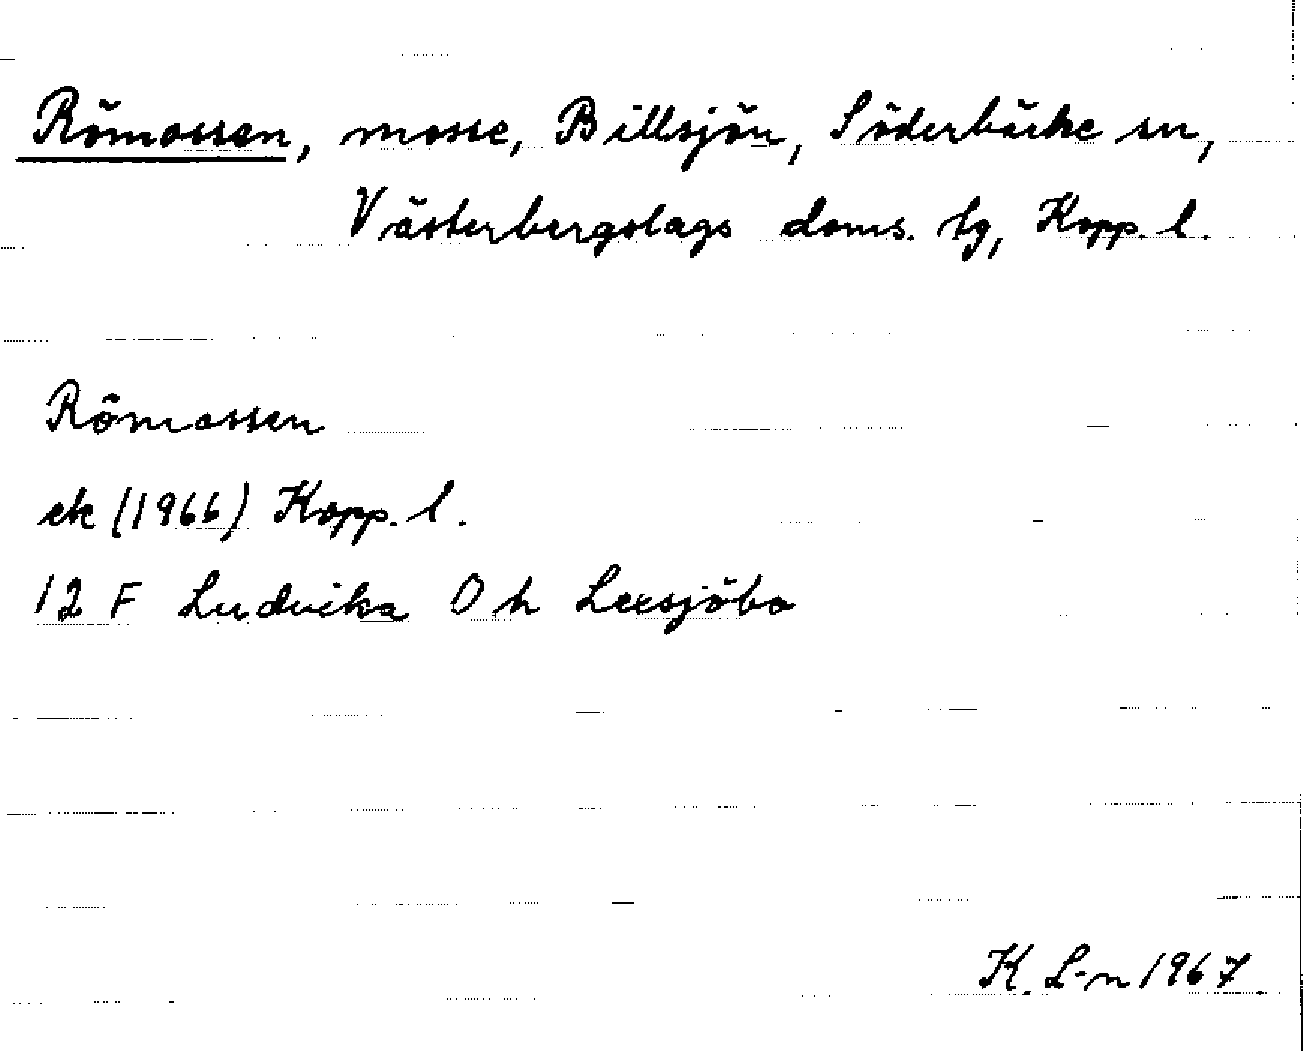 Römossen, mosse, Billsjön, Söderbärke sn,
Västerbergslags doms. tg, Kopp. l.
Römossen
ek (1966) Kopp. l.
12 F Ludvika 0 h Lexsjöbo
K. L-n 1967.